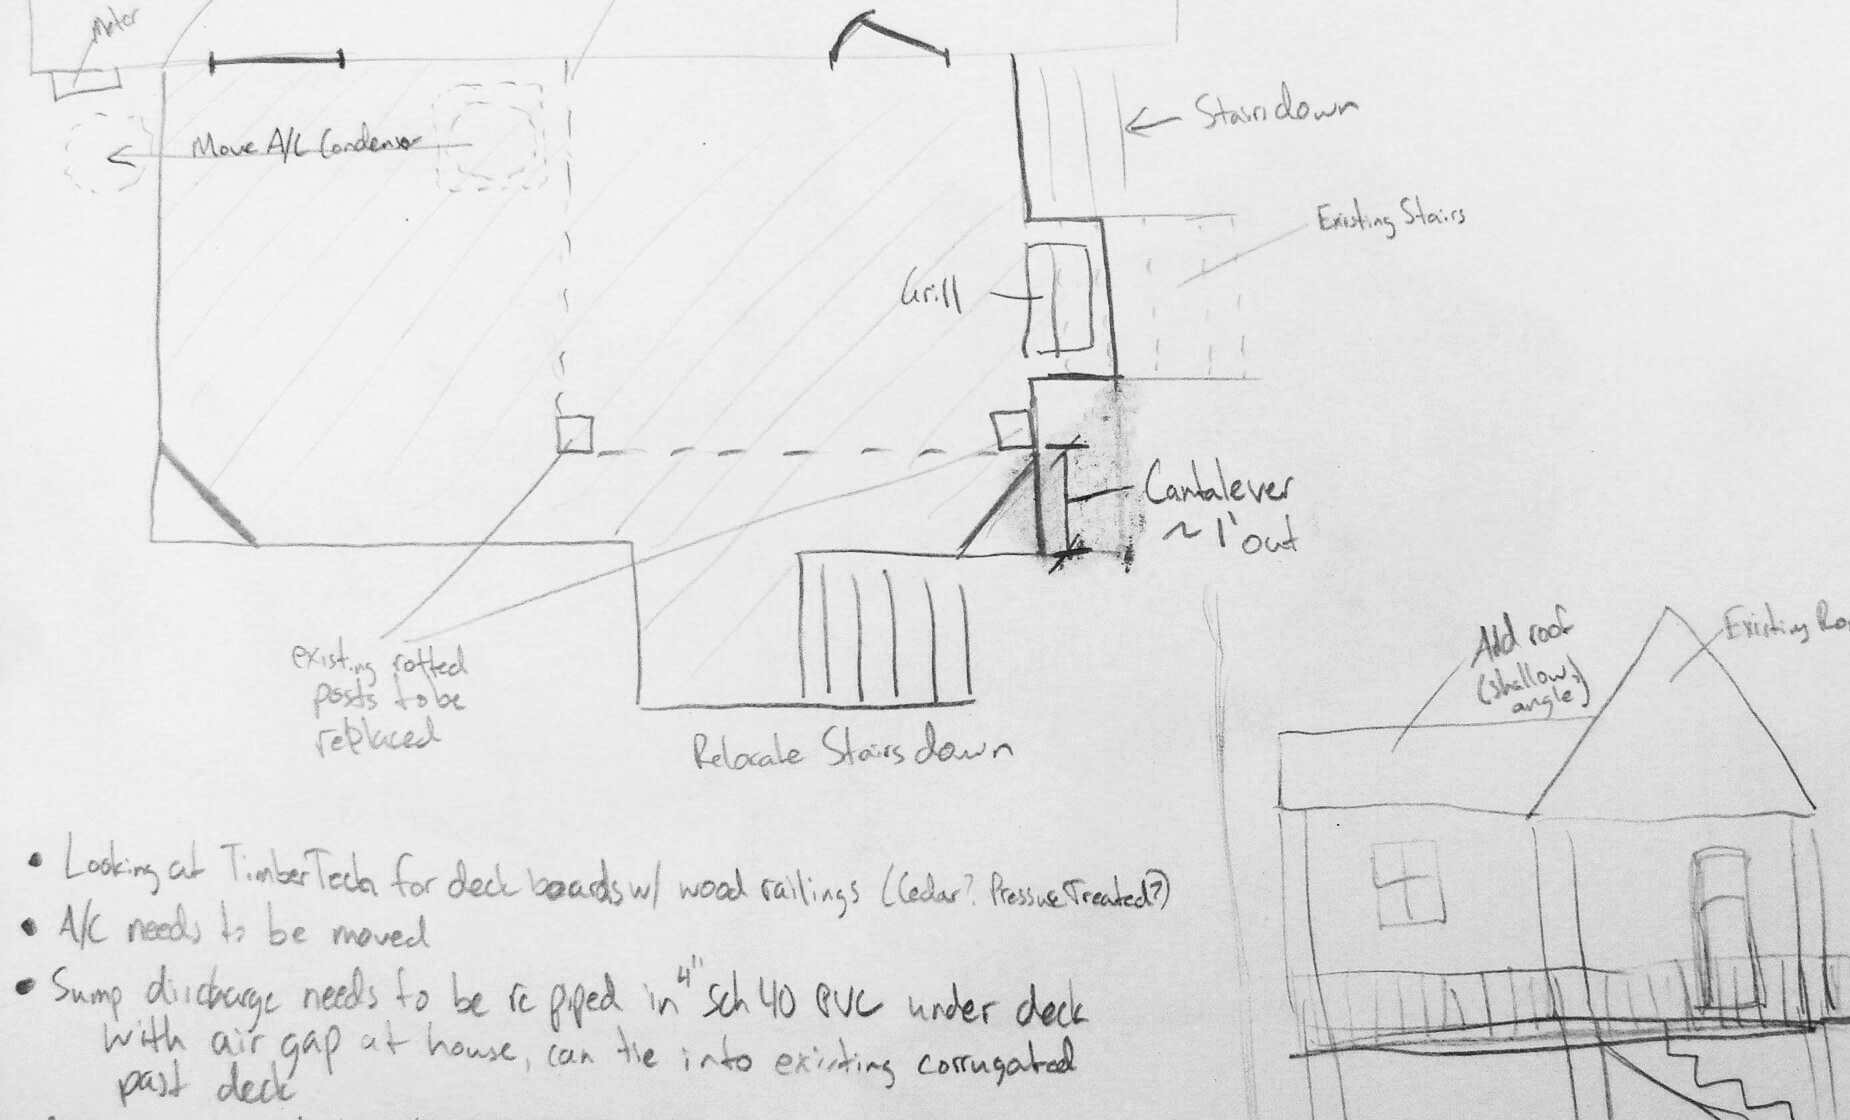 Meter
Move A/C Condensor
Stairs down
Existing Stairs
Grill
Cantalever
~ 1' out
existing rotted
posts to be
replaced
Relocate Stairs down
Add roof
(shallow
angle)
Existing Ro
• Looking at TimberTech for deck boards w/ wood railings (Cedar? Pressure Treated?)
• A/C needs to be moved
• Sump discharge needs to be re piped in 4" Sch 40 PVC under deck
with air gap at house, can tie into existing corrugated
past deck